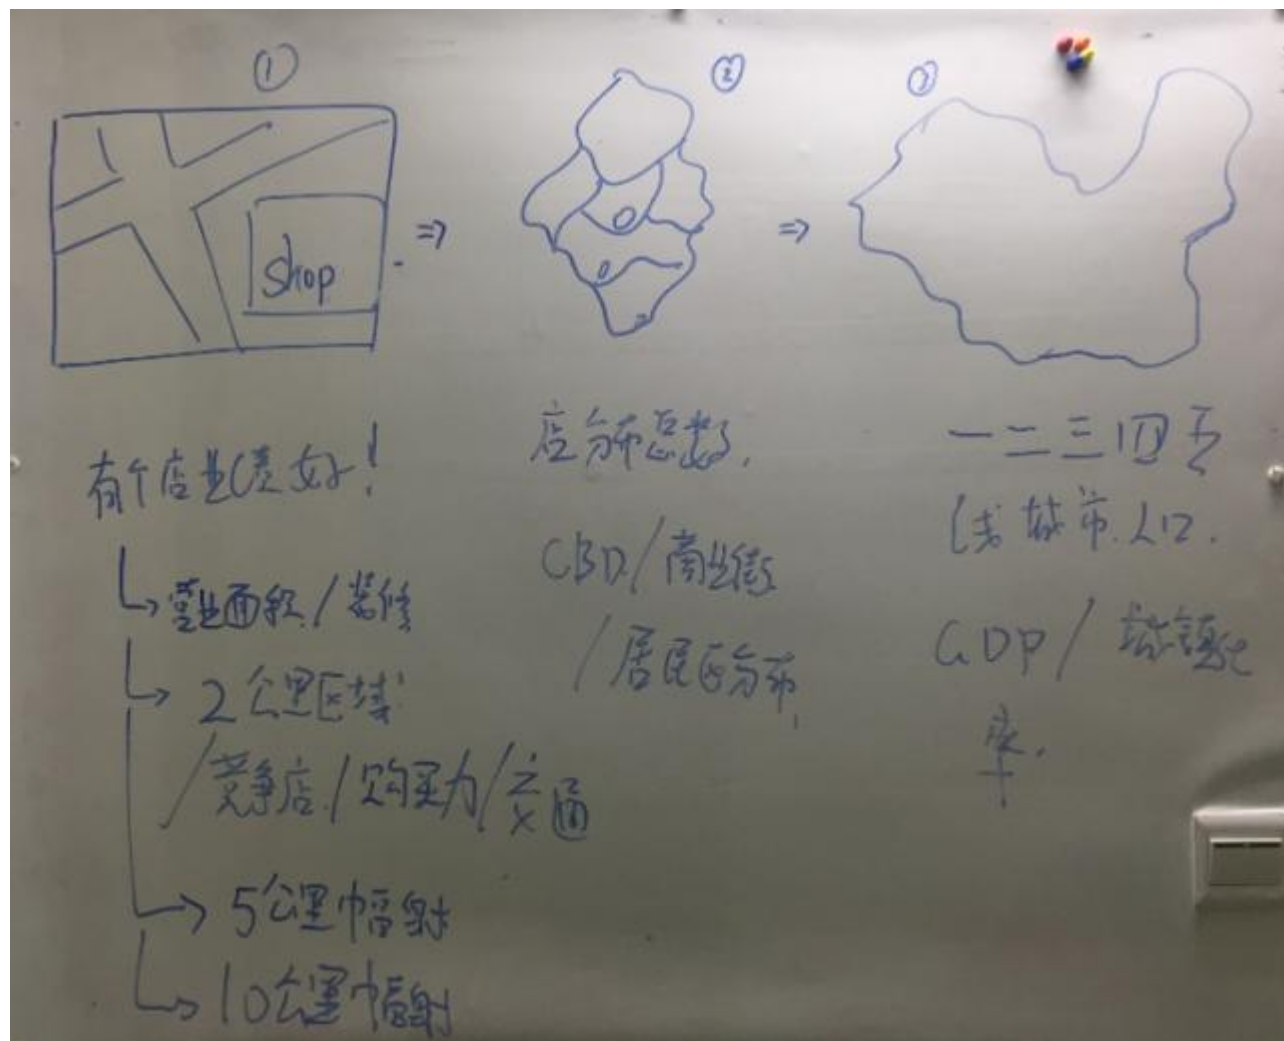 ①
shop
有个店业绩好!
营业面积/装修
2公里区域
/竞争店/购买力/交通
5公里幅射
10公里幅射
②
店分布总数.
CBD/商业街
/居民区分布
③
一二三四五
线城市.人口.
GDP/城镇化
率.